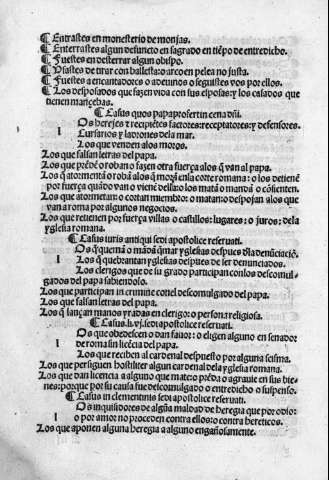 ¶ Entrastes en monesterio de monjas.
¶ Enterrastes algun defuncto en sagrado en tiẽpo de entredicho.
¶ Fuestes en desterrar algun obispo.
¶ Usastes de tirar con ballesta: o arco en pelea no justa.
¶ Fuestes a encantadores o adeuinos o seguistes vos por ellos.
¶ Los desposados que fazen vida con sus esposas: y los casados que
tienen mãcebas.
¶ Casus quos papa prosert in cena dñi.
Os herejes z recipiẽtes factores: receptatores: y defensores.
l Cursarios y ladrones dela mar.
Los que venden alos moros.
Los que falsan letras del papa.
Los que prẽdẽ o roban o fazen otra fuerça alos q̃ van al papa.
Los q̃ atormentã o robã alos q̃ morã enla corte romana: o los detienẽ
por fuerça quãdo van o vienẽ della: o los matã o mandã o cõsienten.
Los que atormentan o cortan miembro: o matan: o despojan alos que
van a roma por algunos negocios.
Los que retienen por fuerça villas o castillos: lugares: o juros: dela
yglesia romana.
¶ Casus iuris antiqui sedi apostolice reseruati.
Os q̃ quemã o mãdã q̃mar yglesias despues dla denũciaciõ.
l Los q̃ quebrantan yglesias despues de ser denunciados.
Los clerigos que de su grado participan conlos descomul
gados del papa sabiendolo.
Los que participan in crimine conel descomulgado del papa.
Los que falsan letras del papa.
Los q̃ lançan manos yradas en clerigo: o persona religiosa.
¶ Casus.li.vj.sedi apostolice reseruati.
Os que obedescen o dan fauor: o eligen alguno en senador
l de roma sin licẽcia del papa.
Los que reciben al cardenal despuesto por alguna scisma.
Los que persiguen hostiliter algun cardenal dela yglesia romana.
Los que dan licencia a alguno que mate o prẽda o agrauie en sus bie
nes: por que por su causa fue descomulgado o entredicho o suspenso.
¶ Casus in clementinis sedi apostolice reseruati.
Os inquisidores de algũa maldad de heregia que por odio:
l o por amor no proceden contra ellos: o contra hereticos.
Los que aponen alguna heregia a alguno engañosamente.